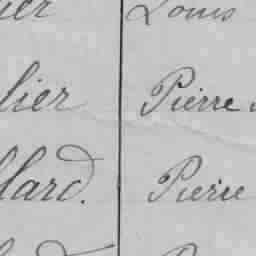 ier Louis
lier Pierre
llard. Pierre